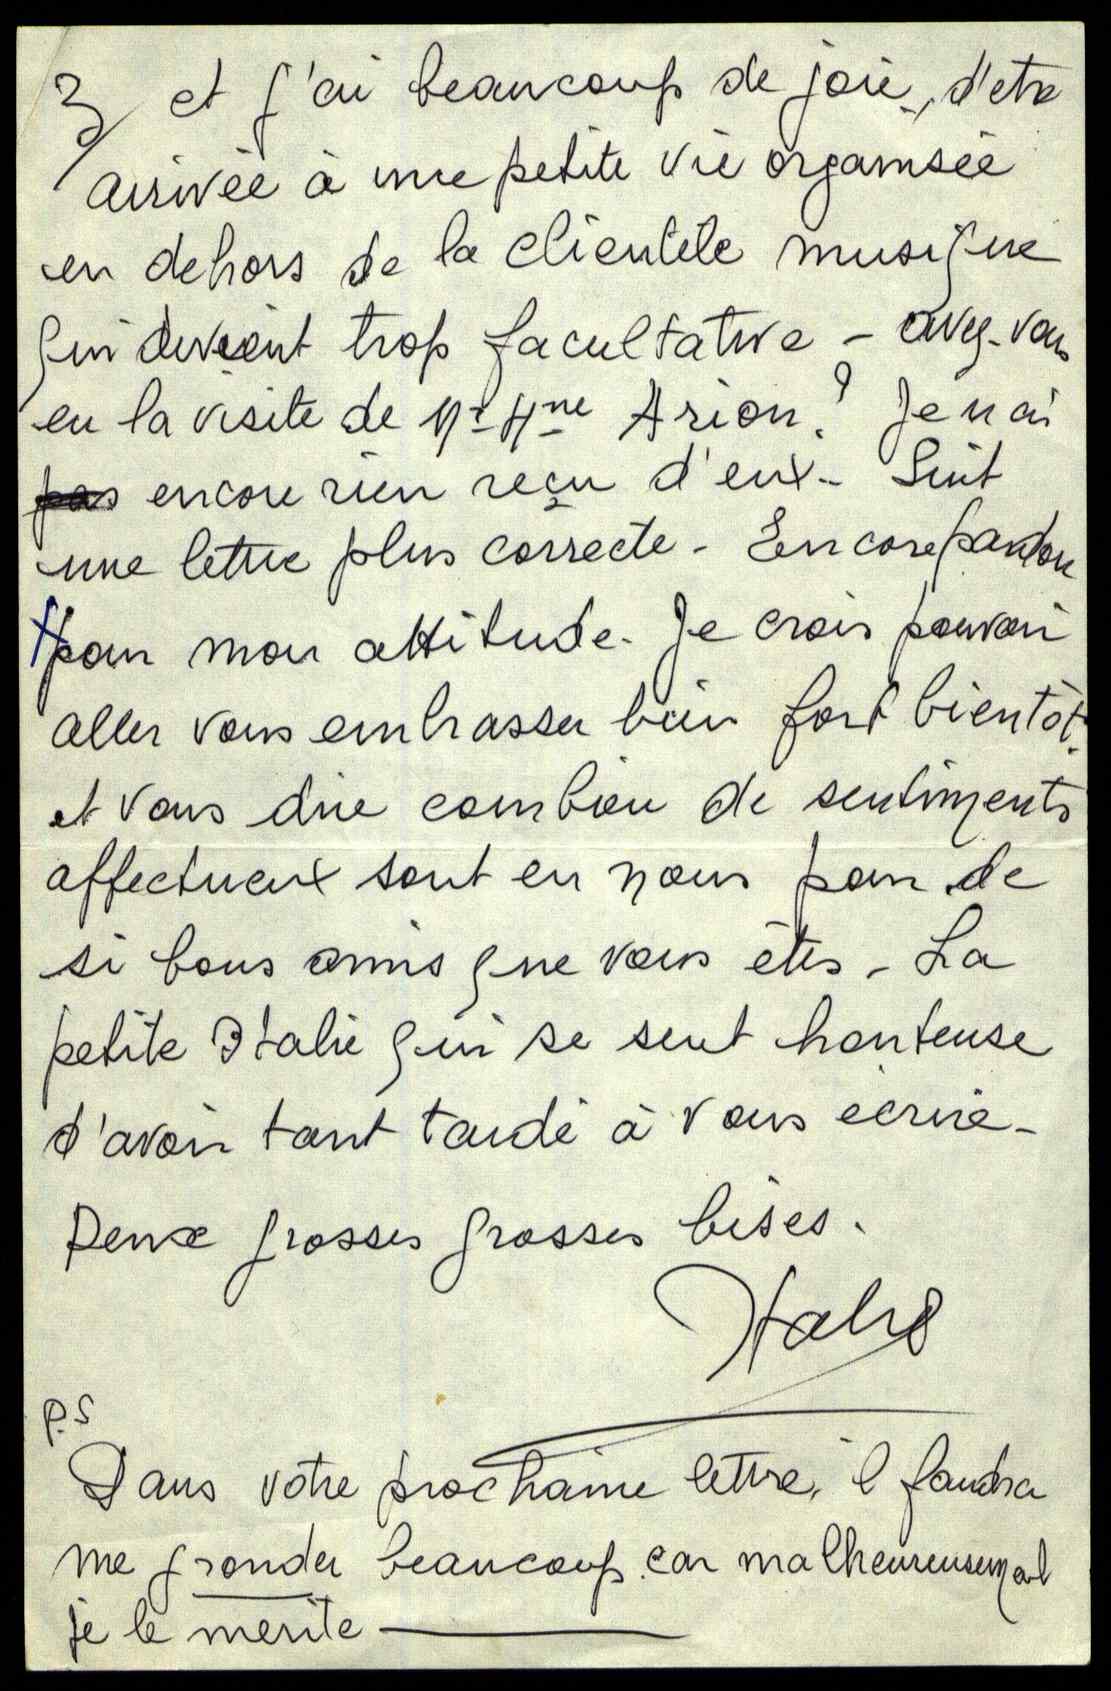 3/ et j'ai beaucoup de joie, d'etre
arrivée à une petite vie organisée
en dehors de la clientèle musique
qui devient trop facultative - avez-vous
eu la visite de Mr Mme Arion? Je n'ai
pas encore rien reçu d'eux - Suit
une lettre plus correcte - Encore pardon
pour mon attitude. Je crois pouvoir
aller vous embrasser bien fort bientôt.
et vous dire combien de sentiments
affectueux sont en nous pour de
si bons amis que vous êtes - La
petite Italie qui se sent honteuse
d'avoir tant tardé à vous écrire -
Deux grosses grosses bises.
P.S
Dans votre prochaine lettre, il faudra
me gronder beaucoup car malheureusement
je le mérite